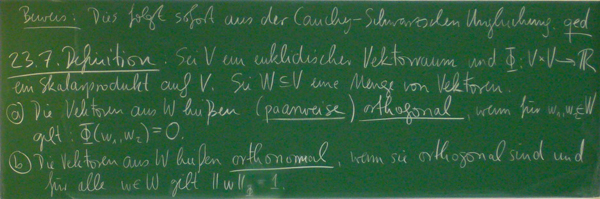 Beweis: Dies folgt sofort aus der Cauchy-Schwarzschen Ungleichung. qed
23.7. Definition. Sei V ein euklidischer Vektorraum und Φ: V×V → ℝ
ein Skalarprodukt auf V. Sei W⊆V eine Menge von Vektoren.
(a) Die Vektoren aus W heißen (paarweise) orthogonal, wenn für w₁,w₂∈W
gilt: Φ(w₁,w₂)=0.
(b) Die Vektoren aus W heißen orthonormal, wenn sie orthogonal sind und
für alle w∈W gilt ||w|| = 1.